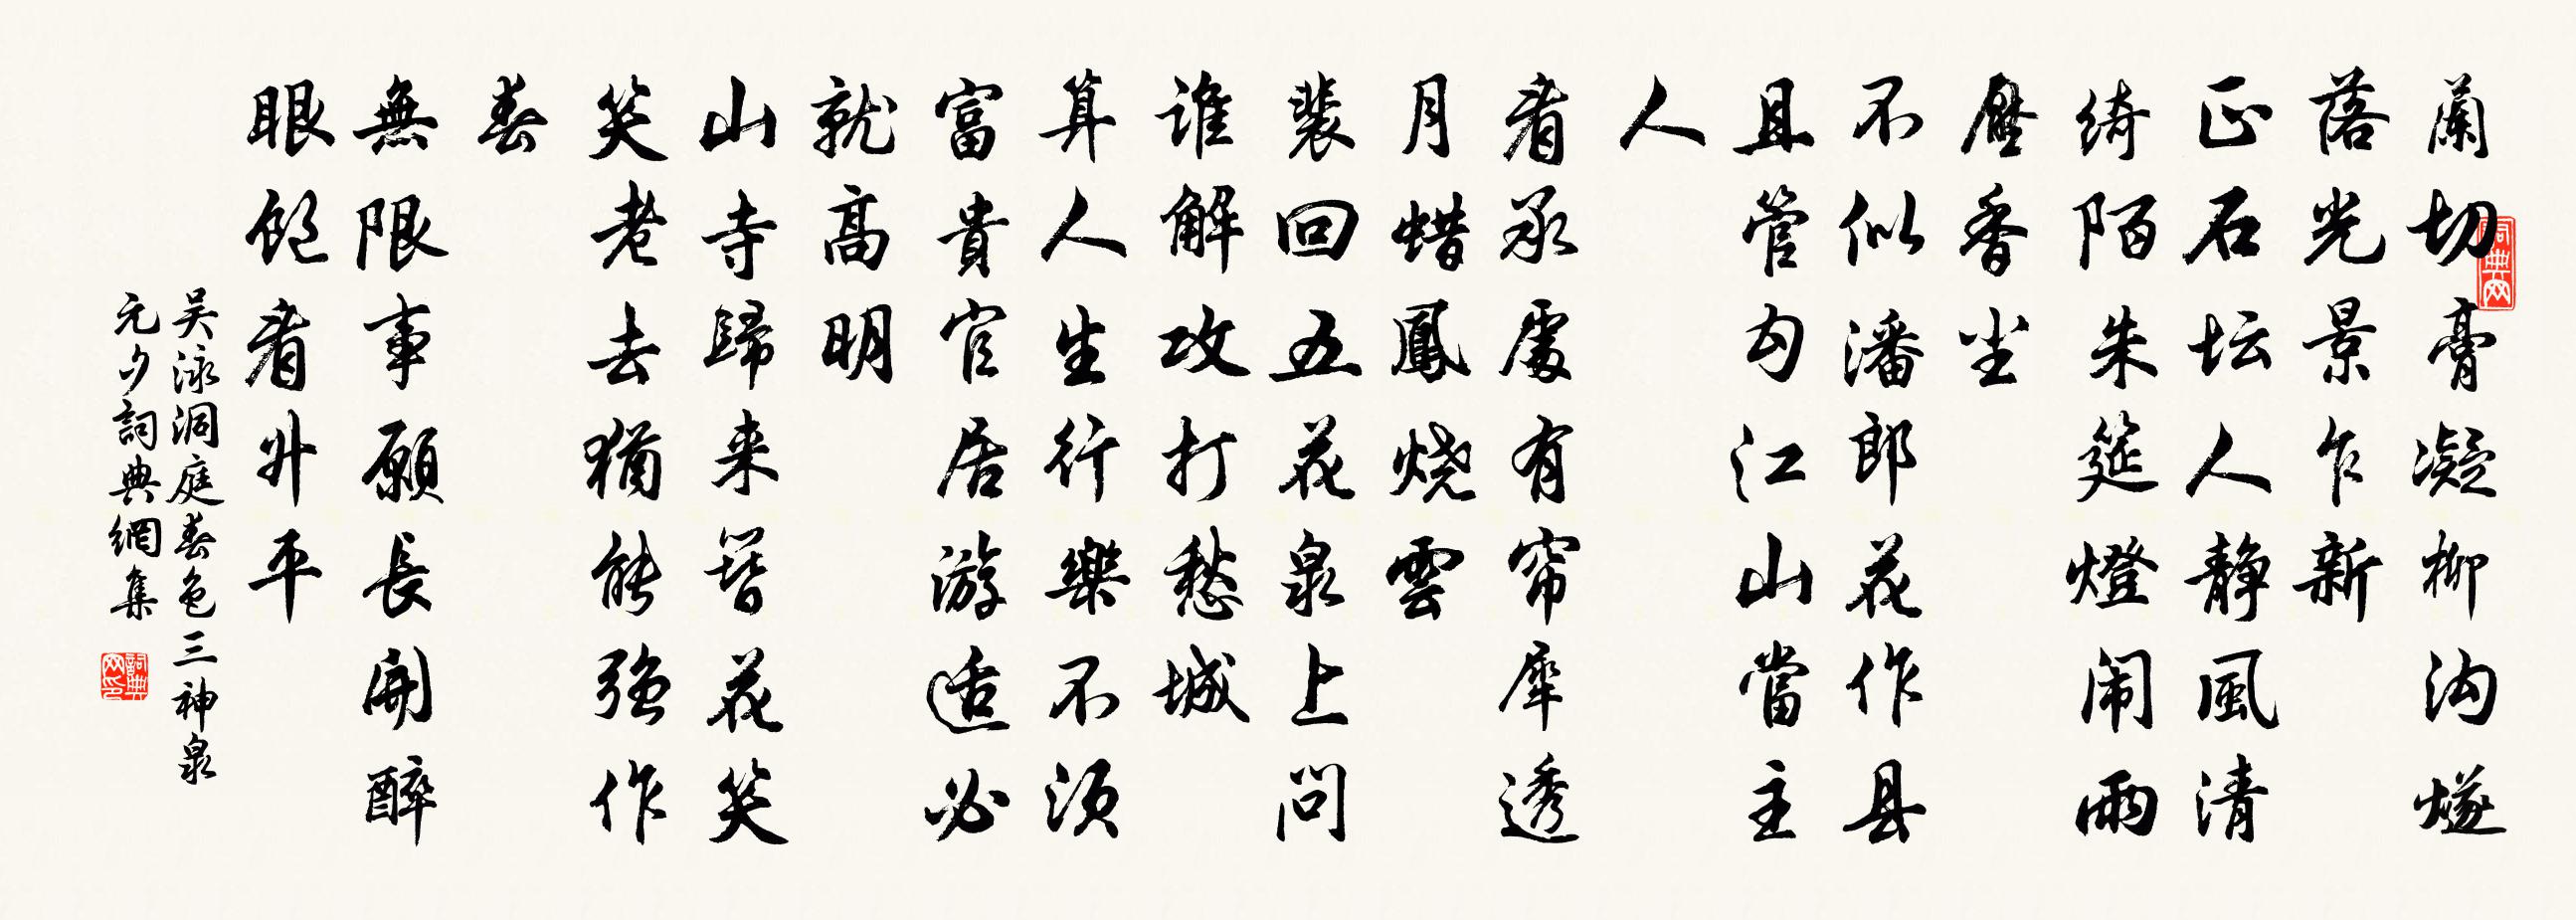 蘭切膏凝柳沟燧
落光景乍新
正石坛人静風清
绮陌朱筵燈闹雨
壓香尘
不似潘郎花作县
且管勾江山當主
人
看承處有帘犀透
月蜡鳳烧雲
裴回五花泉上問
谁解攻打愁城
算人生行樂不须
富貴官居游适必
就高明
山寺歸来簪花笑
笑老去猶能强作
春
無限事願長開醉
眼饱看升平
吴泳洞庭春色三神泉
元夕詞典網集
词典网
詞典网印